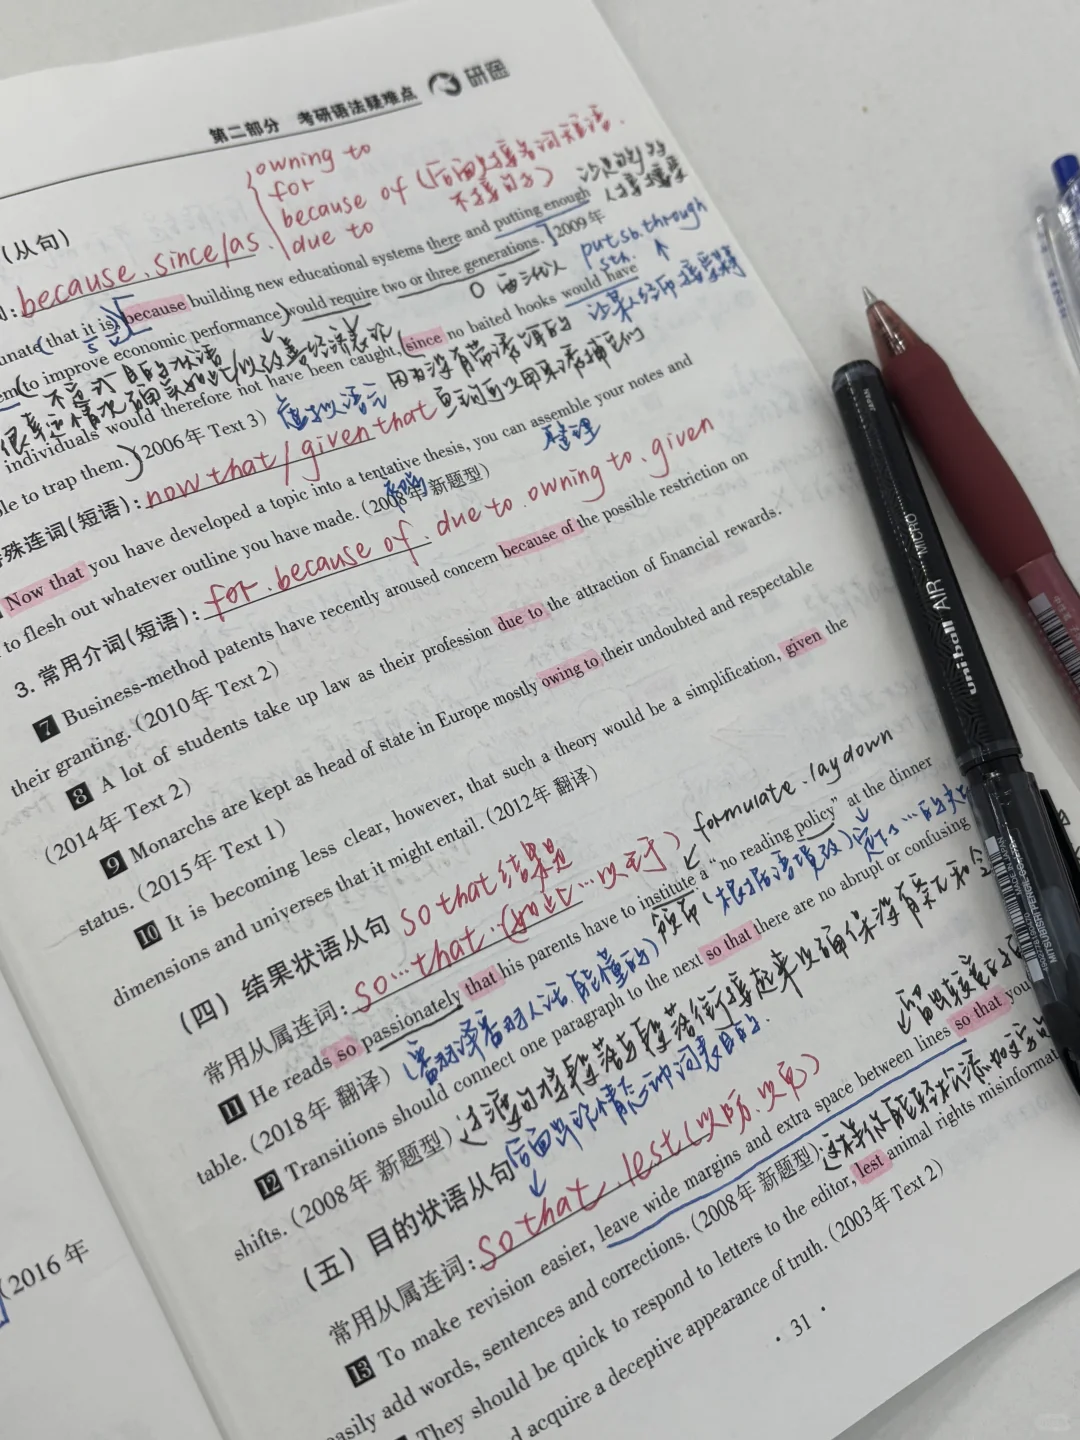 第二部分 考研语法疑难点 研图
owning to
for
because of (后面只接名词和短语.
不接句子)
due to
(从句)
because、since/as.
unate (that it is) because building new educational systems there and putting enough
them (to improve economic performance) would require two or three generations. 2009年
put sb. through
sth.
O 两三代人
让某人经历接受某事
individuals would therefore not have been caught, since no baited hooks would have
ble to trap them. (2006年 Text 3)
虚拟语气
殊连词(短语): now that / given that
整理
Now that you have developed a topic into a tentative thesis, you can assemble your notes and
to flesh out whatever outline you have made. (2008年 新题型)
3. 常用介词(短语): for. because of. due to. owning to. given
7 Business-method patents have recently aroused concern because of the possible restriction on
their granting. (2010年 Text 2)
8 A lot of students take up law as their profession due to the attraction of financial rewards.
(2014年 Text 2)
9 Monarchs are kept as head of state in Europe mostly owing to their undoubted and respectable
status. (2015年 Text 1)
10 It is becoming less clear, however, that such a theory would be a simplification, given the
dimensions and universes that it might entail. (2012年 翻译)
(四) 结果状语从句 so that 结果是
formulate. lay down
常用从属连词: so…that.(如此…以至于)
颁布(根据语境改)
11 He reads so passionately that his parents have to institute a “no reading policy” at the dinner
table. (2018年 翻译)
(翻译番对人话.能懂的)
12 Transitions should connect one paragraph to the next so that there are no abrupt or confusing
shifts. (2008年 新题型)
过渡句将段落与段落衔接起来以确保没有
(五) 目的状语从句 后面出现情态动词表目的.
常用从属连词: so that. lest (以防.以免)
13 To make revision easier, leave wide margins and extra space between lines so that you
easily add words, sentences and corrections. (2008年 新题型)
They should be quick to respond to letters to the editor, lest animal rights misinformat
d acquire a deceptive appearance of truth. (2003年 Text 2)
· 31 ·
(2016年
uniball AIR MICRO
JAPAN